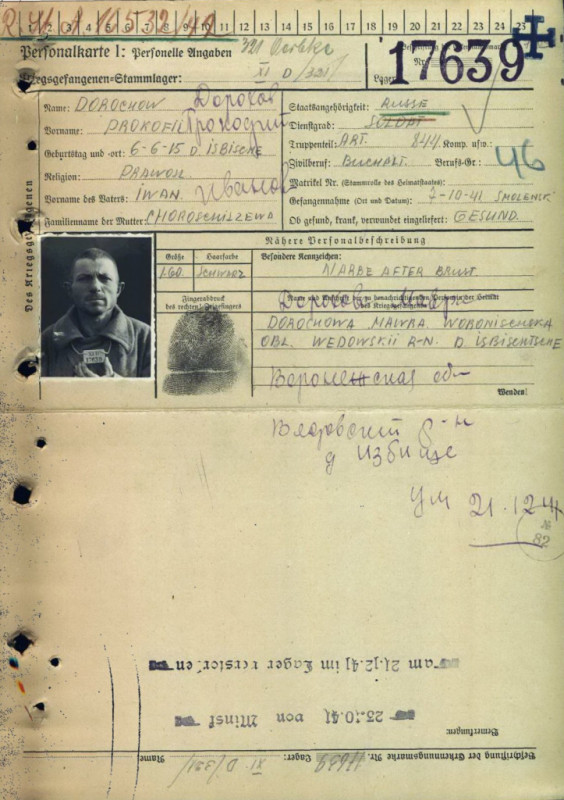 R. 4/ A 10532/49
1 2 3 4 5 6 7 8 9 10 11 12 13 14 15 16 17 18 19 20 21 22 23 24 25
Personalkarte I: Personelle Angaben
321 Oerbke
Kriegsgefangenen-Stammlager: XI D /321/
Nr. 17639
Lager:
Des Kriegsgefangenen
Name: DOROCHOW Дорохов
Vorname: PROKOFII Прокофий
Geburtstag und -ort: 6-6-15 D. ISBISCHE
Religion: PRAWOSL.
Vorname des Vaters: IWAN. Иванов
Familienname der Mutter: CHOROSCHILZEWA
Staatsangehörigkeit: RUSSE
Dienstgrad: SOLDAT
Truppenteil: ART. 844 Komp. usw.:
Zivilberuf: BUCHALT. Berufs-Gr.: 46
Matrikel Nr. (Stammrolle des Heimatstaates):
Gefangennahme (Ort und Datum): 7-10-41 SMOLENSK
Ob gesund, krank, verwundet eingeliefert: GESUND.
Nähere Personalbeschreibung
Größe Haarfarbe Besondere Kennzeichen:
1.60. SCHWARZ NARBE AFTER BRUST.
Fingerabdruck
des rechten Zeigefingers
Name und Anschrift der zu benachrichtigenden Person in der Heimat
des Kriegsgefangenen
Дорохова Мавра
DOROCHOWA MAWRA WORONISCHSKA
OBL. WEDOWSKII R-N. D. ISBISCHTSCHE
Воронежская обл
Wenden!
Ведовский р-н
д Избище
ум 21.12.41
82
am 21.12.41 im Lager verstorben
25.10.41 von Minsk
Bemerkungen:
Beschriftung der Erkennungsmarke Nr. 17639 Lager: XI D/321/ Name